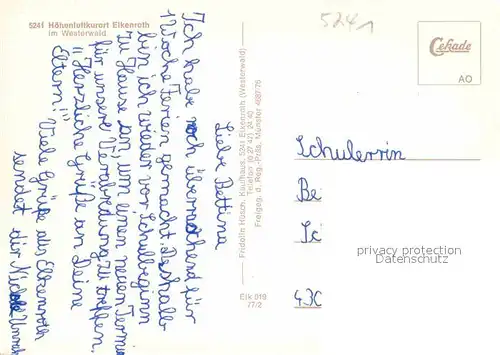 5241 Höhenluftkurort Elkenroth
im Westerwald
5241
Cekade
AO
Liebe Bettina
Ich habe noch überraschend für
1 Woche Ferien gemacht. Deshalb
bin ich wieder vor Schulbeginn
zu Hause an, um einen neuen Termin
für unsere Verabredung zu treffen.
"Herzliche Grüße an Deine
Eltern!"
Viele Grüße aus Elkenroth
sendet dir Nicole
Fridolin Hüsch, Kaufhaus, 5241 Elkenroth (Westerwald)
Telefon (0 27 47) 24 40
Freigeg. d. Reg.-Präs. Münster 4887/76
Elk 019
77/2
Schülerrin
Be
Sc
43C
privacy protection
Datenschutz